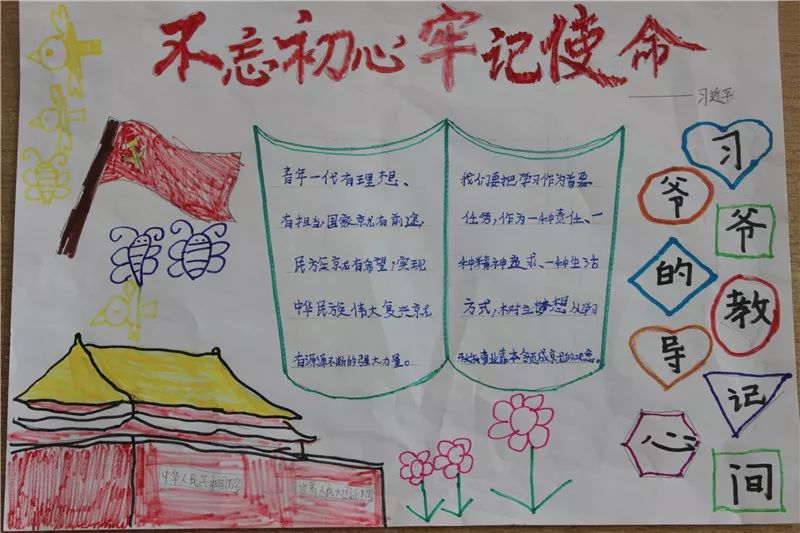 不忘初心牢记使命
——习近平
青年一代有理想、
有担当,国家就有前途,
民族就有希望,实现
中华民族伟大复兴就
有源源不断的强大力量。
我们要把学习作为首要
任务,作为一种责任、一
种精神追求、一种生活
方式,树立梦想从学习
事业靠本领成就的观念。
习
爷
爷
的
教
导
记
心
间
中华人民共和国万岁
世界人民大团结万岁